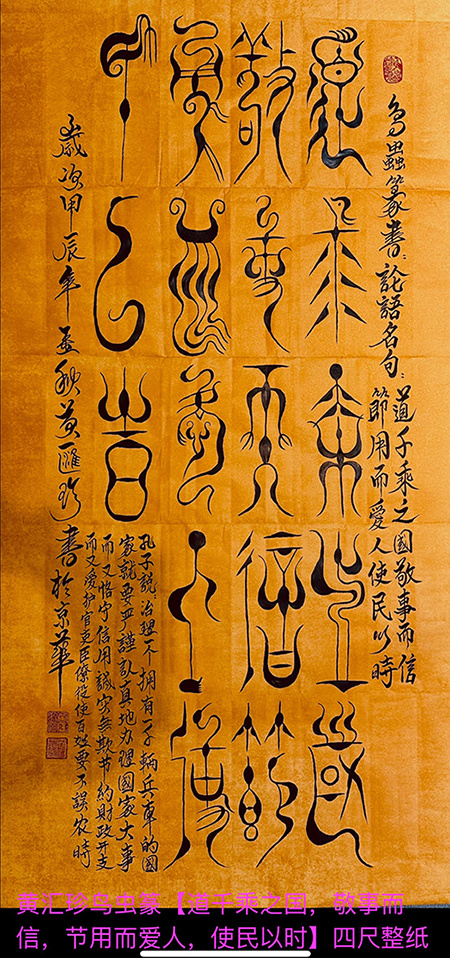 鳥蟲篆書：論語名句：道千乘之國敬事而信
節用而愛人使民以時
道千乘之國
敬事而信節
用而愛人使
民以時
孔子說治理一个擁有一千輛兵車的國
家就要严謹認真地办理國家大事
而又恪守信用誠实無欺节約財政开支
而又爱护官吏臣僚役使百姓要不誤农時
歲次甲辰年孟秋黄匯珍書於京華
黄汇珍鸟虫篆【道千乘之国，敬事而
信，节用而爱人，使民以时】四尺整纸